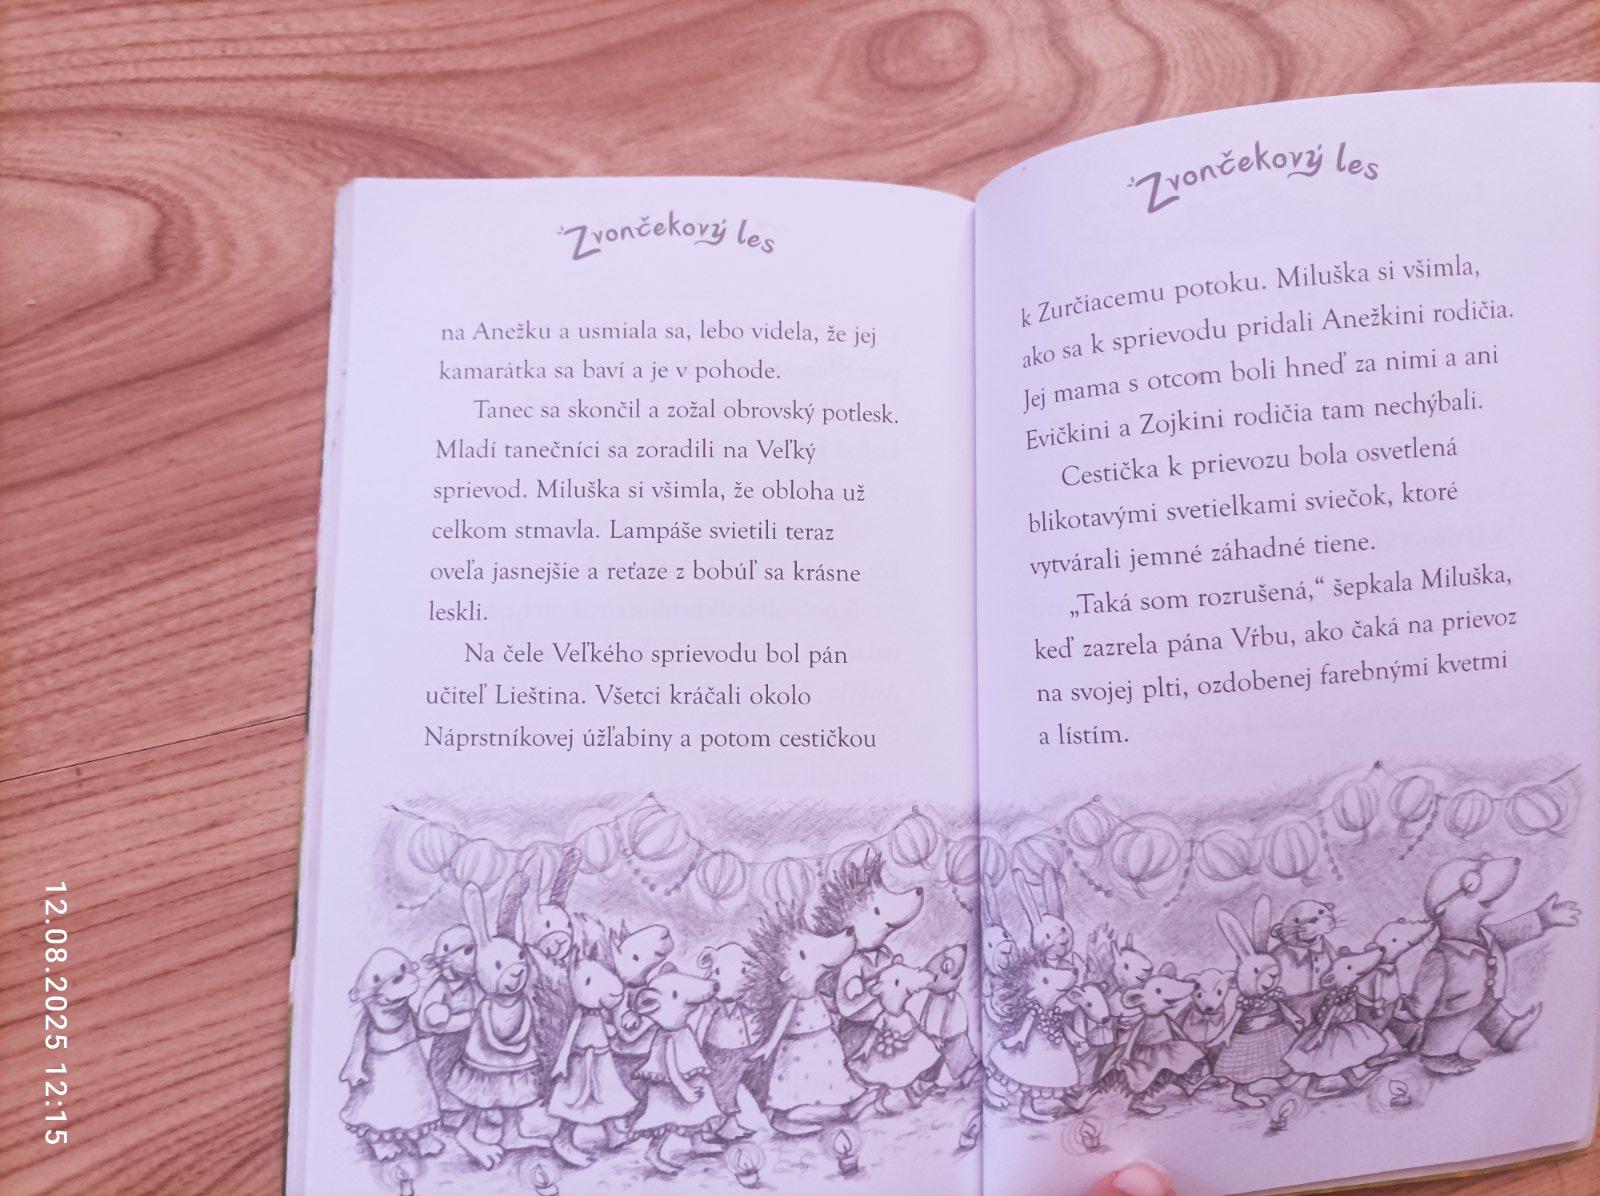 Zvončekový les
na Anežku a usmiala sa, lebo videla, že jej
kamarátka sa baví a je v pohode.
Tanec sa skončil a zožal obrovský potlesk.
Mladí tanečníci sa zoradili na Veľký
sprievod. Miluška si všimla, že obloha už
celkom stmavla. Lampáše svietili teraz
oveľa jasnejšie a reťaze z bobúľ sa krásne
leskli.
Na čele Veľkého sprievodu bol pán
učiteľ Lieština. Všetci kráčali okolo
Náprstníkovej úžľabiny a potom cestičkou
Zvončekový les
k Zurčiacemu potoku. Miluška si všimla,
ako sa k sprievodu pridali Anežkini rodičia.
Jej mama s otcom boli hneď za nimi a ani
Evičkini a Zojkini rodičia tam nechýbali.
Cestička k prievozu bola osvetlená
blikotavými svetielkami sviečok, ktoré
vytvárali jemné záhadné tiene.
„Taká som rozrušená,“ šepkala Miluška,
keď zazrela pána Vŕbu, ako čaká na prievoz
na svojej plti, ozdobenej farebnými kvetmi
a lístím.
12.08.2025 12:15